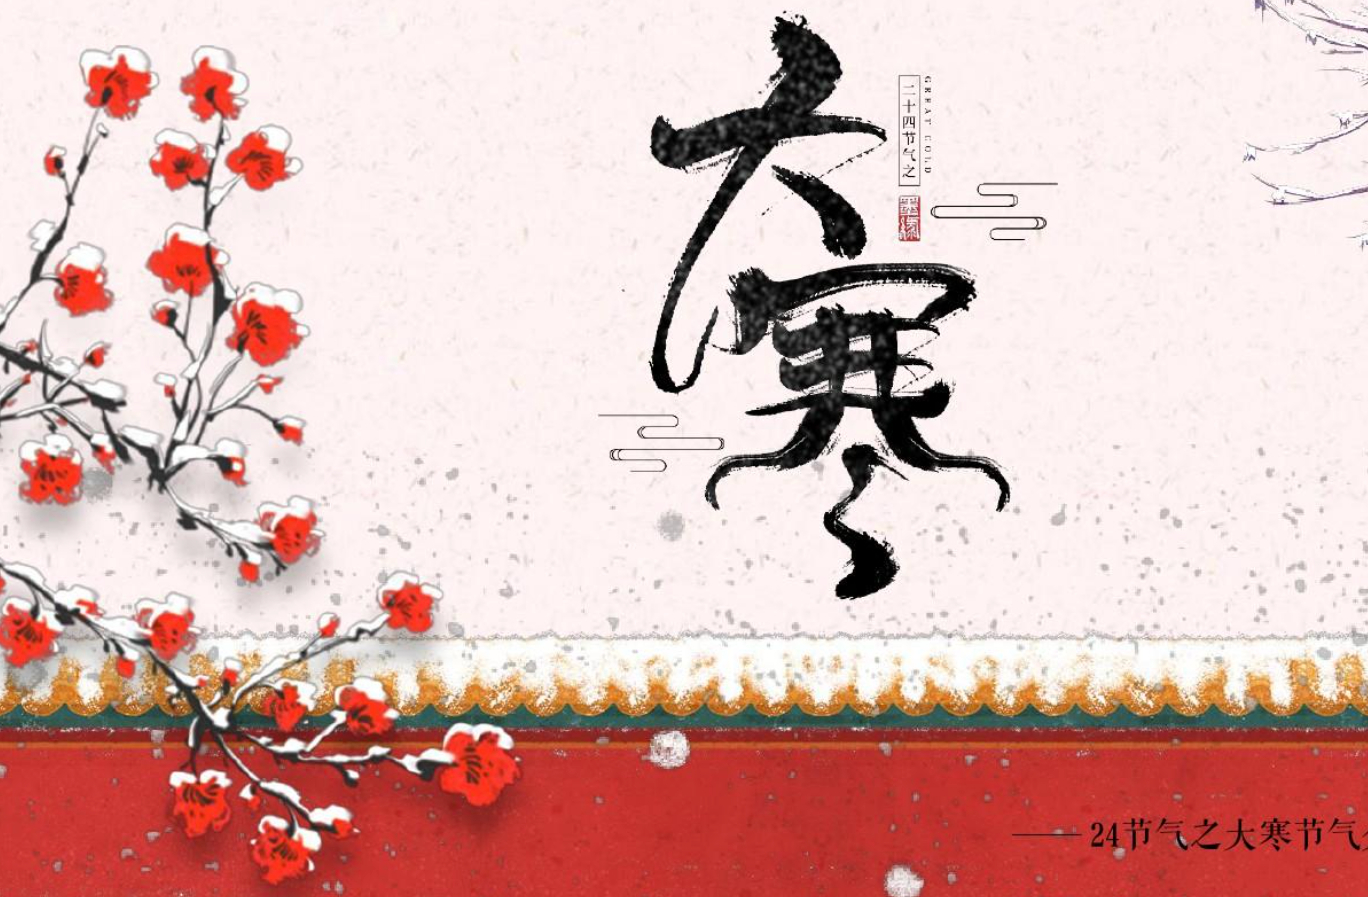 大寒
二十四节气之
GREAT COLD
——24节气之大寒节气